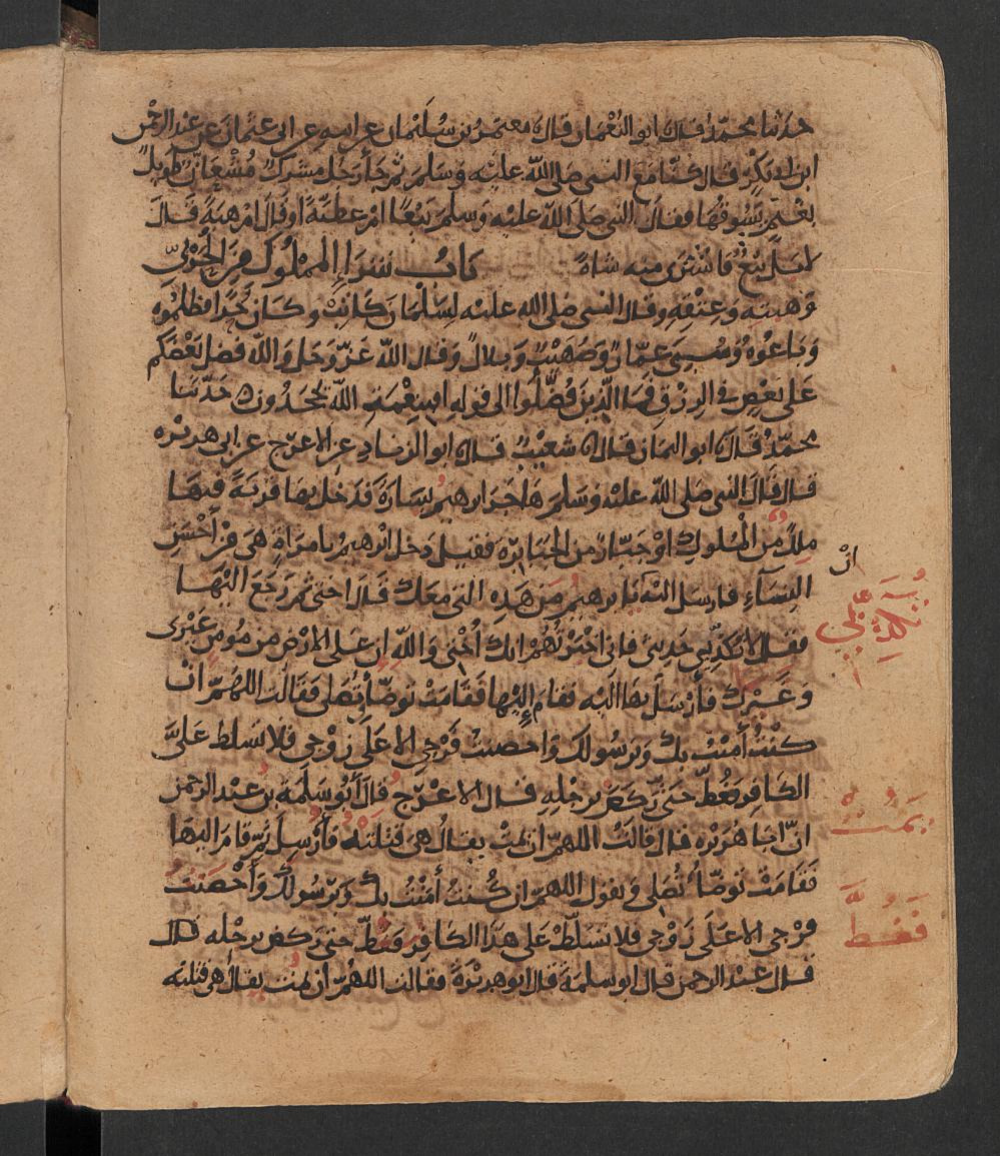 حدثنا محمد قال نا ابو النعمان قال نا معتمر بن سليمان عن ابيه عن ابي عثمان عن عبد الرحمن
ابن ابي بكر قال كنا مع النبي صلى الله عليه وسلم ثم جا رجل مشرك مشعان طويل
بغنم يسوقها فقال النبي صلى الله عليه وسلم بيعا ام عطية او قال ام هبة قال
لا بل بيع فاشترى منه شاة باب شرا المملوك من الحربي
وهبته وعتقه وقال النبي صلى الله عليه لسلمان كاتب وكان حرا فظلموه
وباعوه وسبي عمار وصهيب وبلال وقال الله عز وجل والله فضل بعضكم
على بعض في الرزق فما الذين فضلوا الى قوله افبنعمة الله يجحدون حدثنا
محمد قال نا ابو اليمان قال نا شعيب قال نا ابو الزناد عن الاعرج عن ابي هريرة
قال قال النبي صلى الله عليه وسلم هاجر ابرهيم بسارة فدخل بها قرية فيها
ملك من الملوك او جبار من الجبابرة فقيل دخل ابرهيم بامراة هي من احسن
النساء فارسل اليه ان يا ابرهيم من هذه التي معك قال اختي ثم رجع اليها
فقال لا تكذبي حديثي فاني اخبرتهم انك اختي والله ان على الارض من مومن غيري
وغيرك فأرسل بها اليه فقام إليها فقامت توضأ وتصلي فقالت اللهم ان
كنت أمنت بك وبرسولك واحصنت فرجي الا على زوجي فلا تسلط علي
الكافر فغط حتى ركض برجله قال الاعرج قال أبو سلمة بن عبد الرحمن
ان ابا هريرة قال قالت اللهم ان يمت يقال هي قتلته فأرسل ثم قام اليها
فقامت توضأ تصلي وتقول اللهم ان كنت أمنت بك وبرسولك وأحصنت
فرجي الا على زوجي فلا تسلط على هذا الكافر فغط حتى ركض برجله قال
قال عبد الرحمن قال ابو سلمة قال ابو هريرة فقالت اللهم ان يمت يقال هي قتلته
ان
يمت
فغط